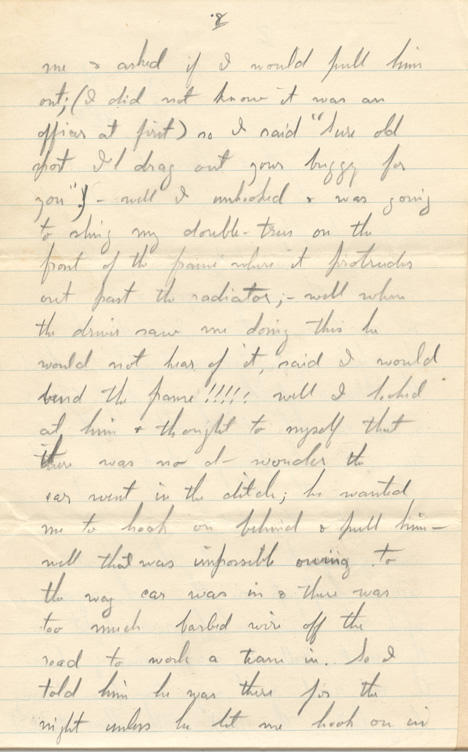 8.
me & asked if I would pull him
out; (I did not know it was an
officer at first) so I said "Sure old
sport I'l drag out your buggy for
you") - well I unhooked & was going
to sling my double-trees on the
front of the frame where it protrudes
out past the radiator; - well when
the driver saw me doing this he
would not hear of it, said I would
bend the frame !!!!! well I looked
at him & thought to myself that
there was no d- wonder the
car went in the ditch; he wanted
me to hook on behind & pull him -
well that was impossible owing to
the way car was in & there was
too much barbed wire off the
road to work a team in. So I
told him he was there for the
night unless he let me hook on in